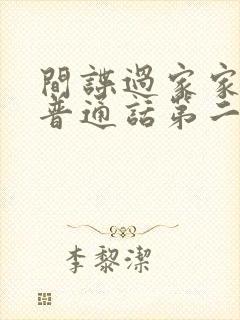 間諜過家家
普通話第二
李黎潔